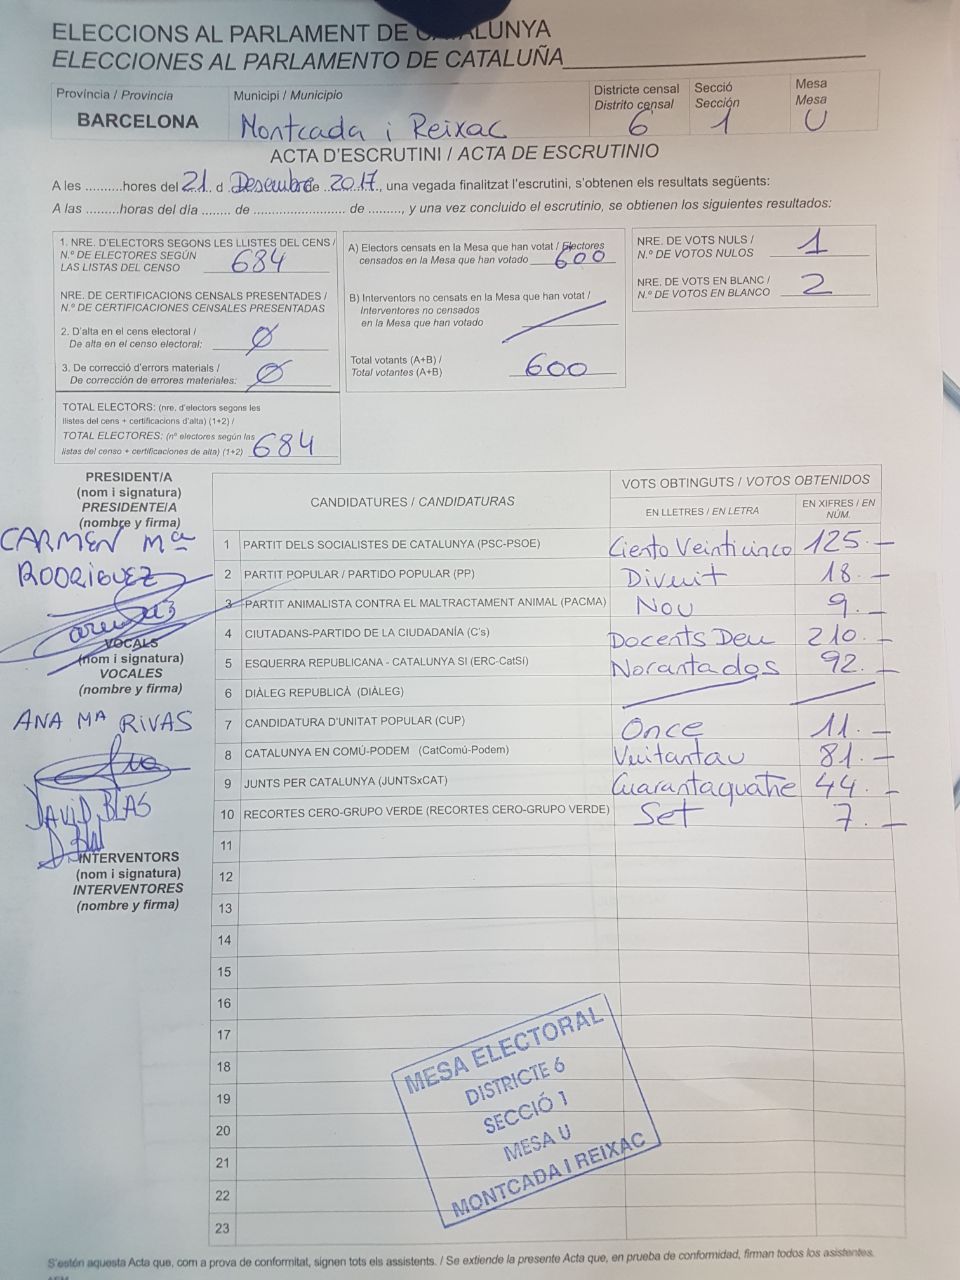 ELECCIONS AL PARLAMENT DE CATALUNYA
ELECCIONES AL PARLAMENTO DE CATALUÑA
Província / Provincia
BARCELONA
Municipi / Municipio
Montcada i Reixac
Districte censal
Distrito censal
6
Secció
Sección
1
Mesa
Mesa
U
ACTA D'ESCRUTINI / ACTA DE ESCRUTINIO
A les ..........hores del 21 d Desembre de 2017, una vegada finalitzat l'escrutini, s'obtenen els resultats següents:
A las .........horas del día ........ de ......................... de ........., y una vez concluido el escrutinio, se obtienen los siguientes resultados:
1. NRE. D'ELECTORS SEGONS LES LLISTES DEL CENS /
N.º DE ELECTORES SEGÚN
LAS LISTAS DEL CENSO 684
NRE. DE CERTIFICACIONS CENSALS PRESENTADES /
N.º DE CERTIFICACIONES CENSALES PRESENTADAS
2. D'alta en el cens electoral /
De alta en el censo electoral: Ø
3. De correcció d'errors materials /
De corrección de errores materiales: Ø
TOTAL ELECTORS: (nre. d'electors segons les
llistes del cens + certificacions d'alta) (1+2) /
TOTAL ELECTORES: (nº electores según las
listas del censo + certificaciones de alta) (1+2) 684
A) Electors censats en la Mesa que han votat / Electores
censados en la Mesa que han votado 600
B) Interventors no censats en la Mesa que han votat /
Interventores no censados
en la Mesa que han votado
Total votants (A+B) /
Total votantes (A+B) 600
NRE. DE VOTS NULS /
N.º DE VOTOS NULOS 1
NRE. DE VOTS EN BLANC /
N.º DE VOTOS EN BLANCO 2
PRESIDENT/A
(nom i signatura)
PRESIDENTE/A
(nombre y firma)
CARMEN Mª
RODRIGUEZ
VOCALS
(nom i signatura)
VOCALES
(nombre y firma)
ANA Mª RIVAS
DAVID BLAS
INTERVENTORS
(nom i signatura)
INTERVENTORES
(nombre y firma)
CANDIDATURES / CANDIDATURAS
VOTS OBTINGUTS / VOTOS OBTENIDOS
EN LLETRES / EN LETRA
EN XIFRES / EN NÚM.
1 PARTIT DELS SOCIALISTES DE CATALUNYA (PSC-PSOE) Ciento Veinticinco 125.—
2 PARTIT POPULAR / PARTIDO POPULAR (PP) Divuit 18.—
3 PARTIT ANIMALISTA CONTRA EL MALTRACTAMENT ANIMAL (PACMA) Nou 9.—
4 CIUTADANS-PARTIDO DE LA CIUDADANÍA (C's) Docents Deu 210.—
5 ESQUERRA REPUBLICANA - CATALUNYA SI (ERC-CatSí) Norantados 92.—
6 DIÀLEG REPUBLICÀ (DIÀLEG)
7 CANDIDATURA D'UNITAT POPULAR (CUP) Once 11.—
8 CATALUNYA EN COMÚ-PODEM (CatComú-Podem) Vuitantau 81.—
9 JUNTS PER CATALUNYA (JUNTSxCAT) Cuarantaquatre 44.—
10 RECORTES CERO-GRUPO VERDE (RECORTES CERO-GRUPO VERDE) Set 7.—
11
12
13
14
15
16
17
18
19
20
21
22
23
MESA ELECTORAL
DISTRICTE 6
SECCIÓ 1
MESA U
MONTCADA I REIXAC
S'estén aquesta Acta que, com a prova de conformitat, signen tots els assistents. / Se extiende la presente Acta que, en prueba de conformidad, firman todos los asistentes.